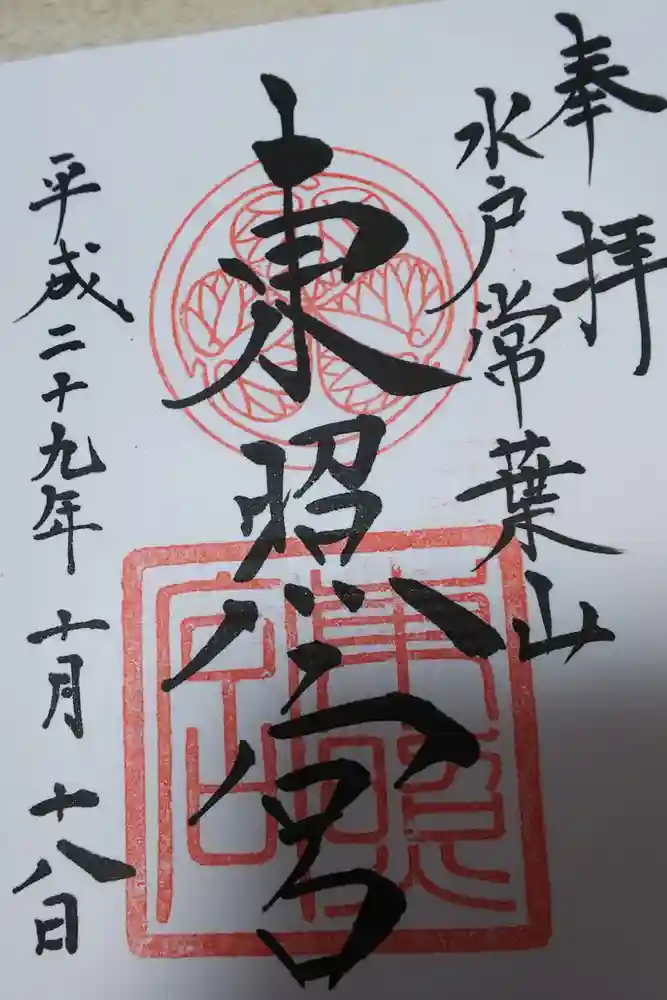 奉拝
水戸常葉山
東照宮
平成二十九年十月十八日